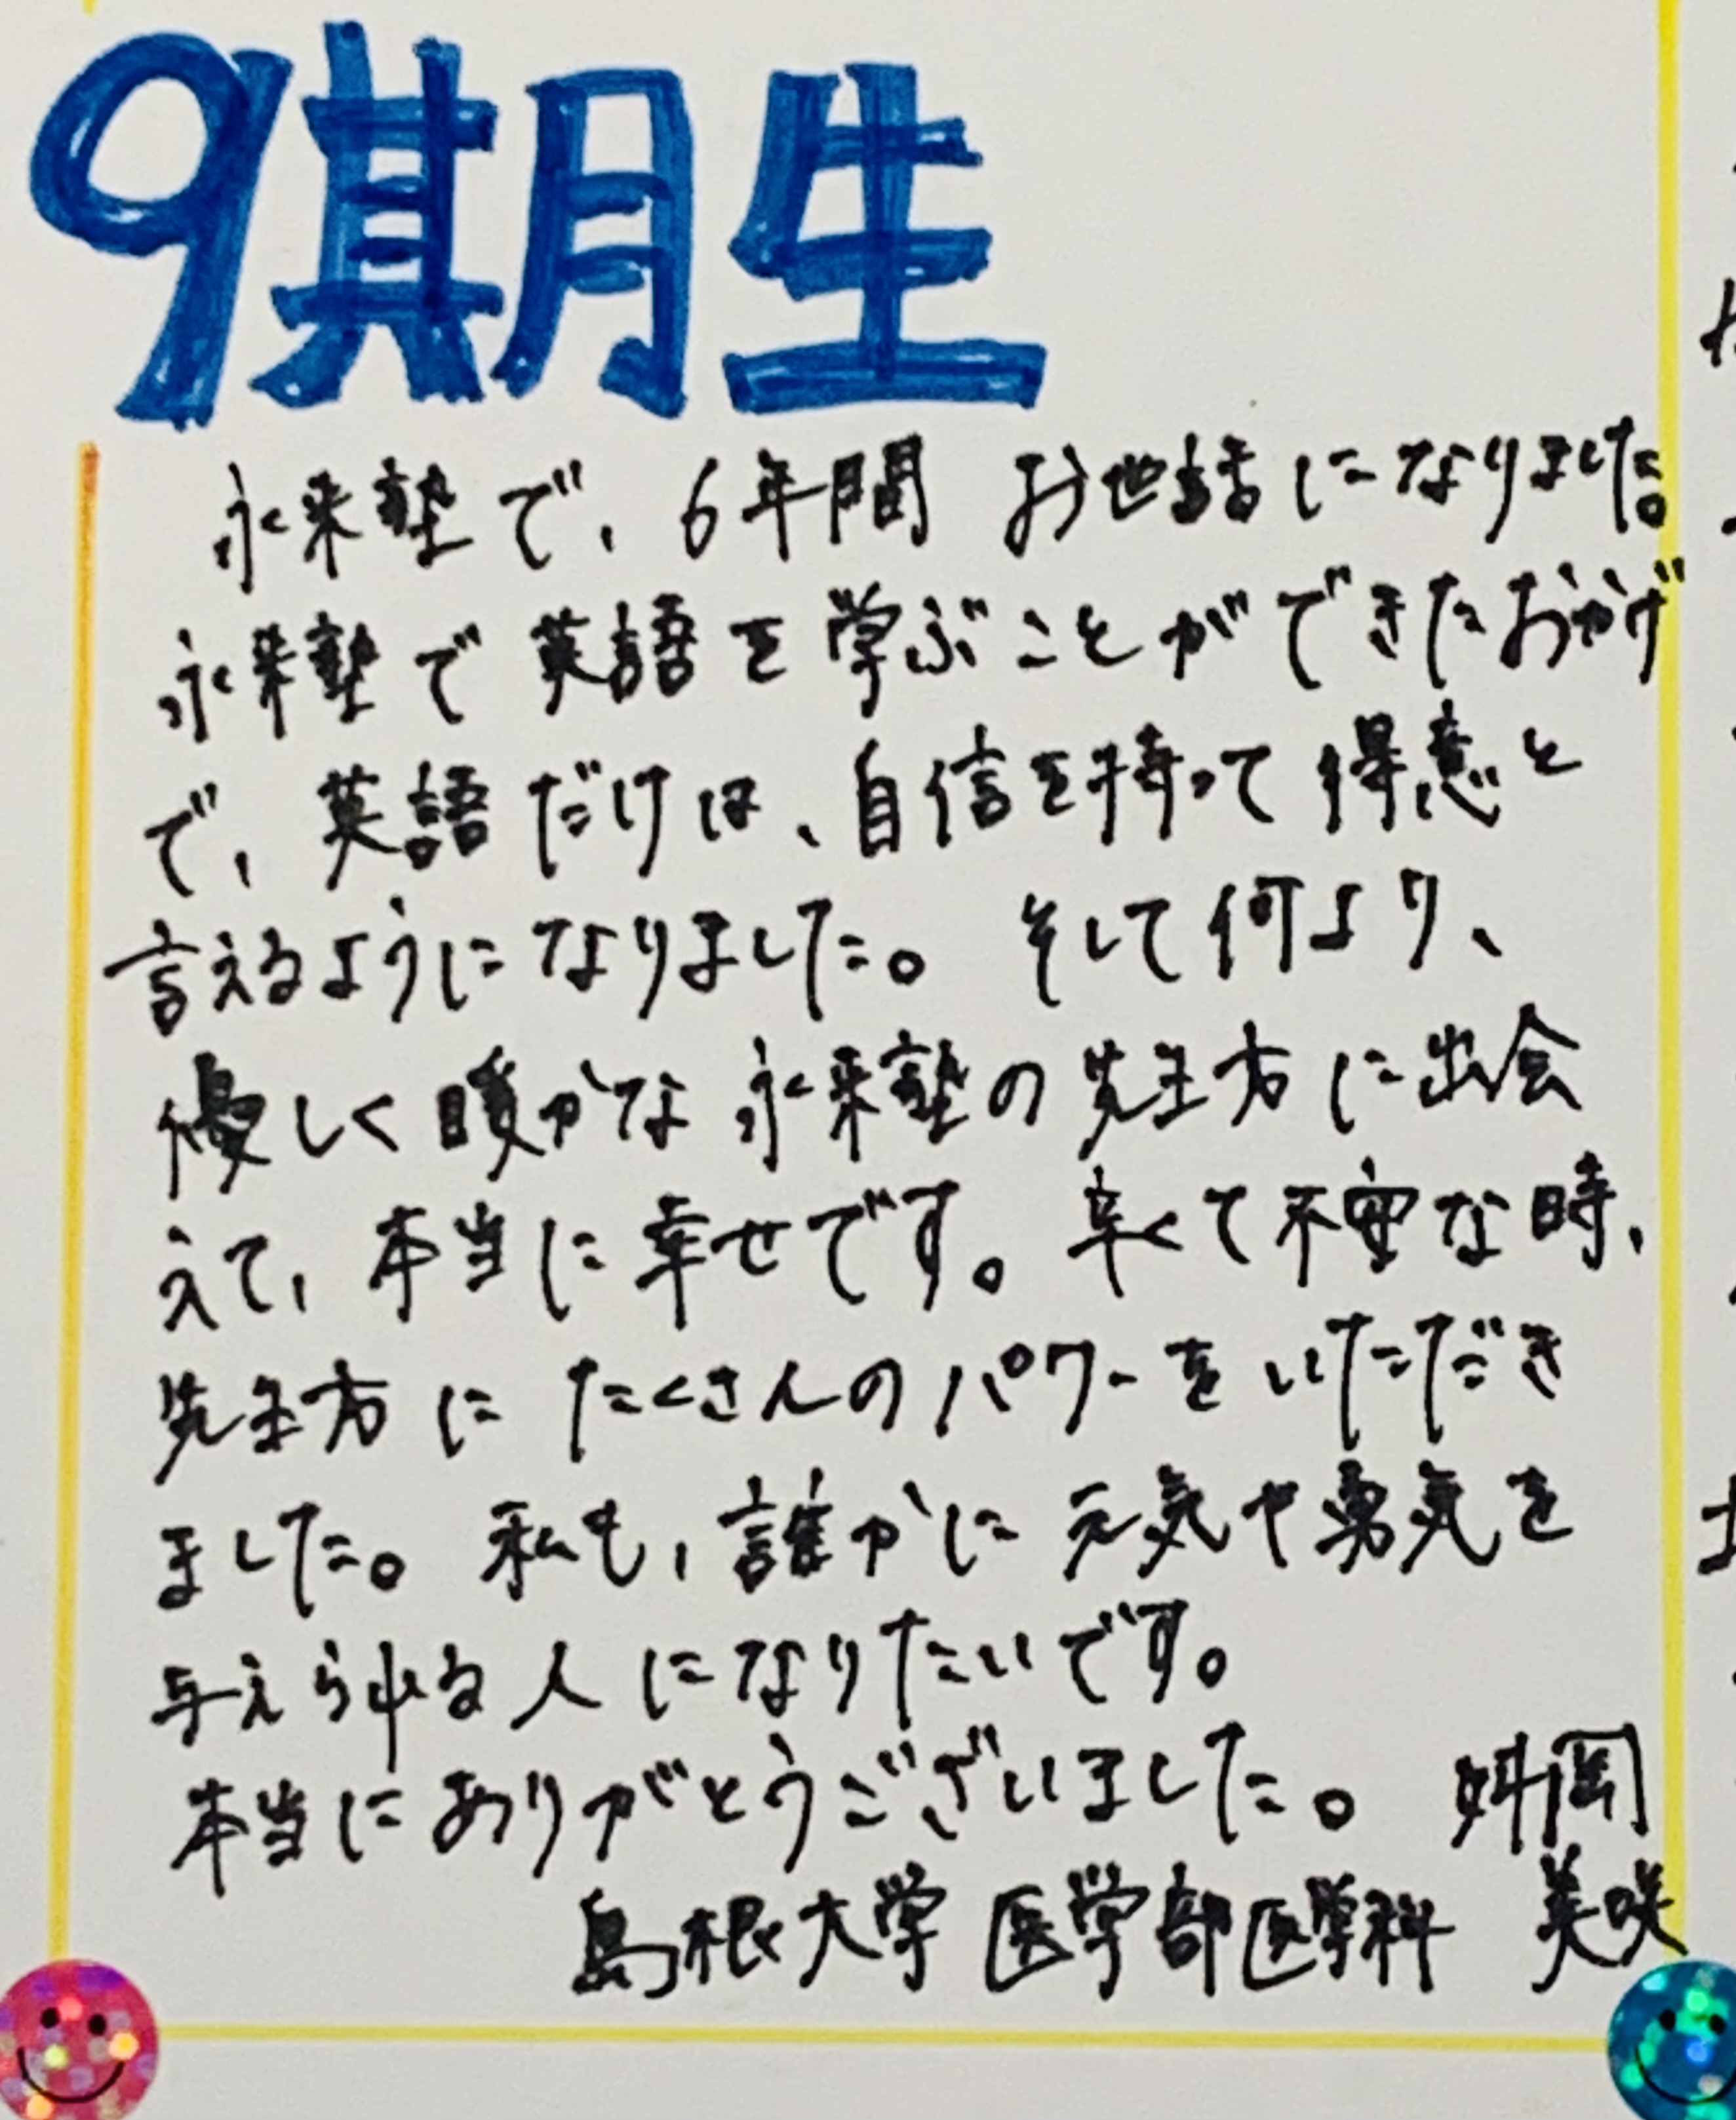 9期生
永来塾で、6年間 お世話になりました。
永来塾で英語を学ぶことができたおかげ
で、英語だけは、自信を持って得意と
言えるようになりました。そして何より、
優しく暖かな永来塾の先生方に出会
えて、本当に幸せです。辛くて不安な時、
先生方に たくさんのパワーをいただき
ました。私も、誰かに元気や勇気を
与えられる人になりたいです。
本当にありがとうございました。 岡
島根大学 医学部医学科 美咲